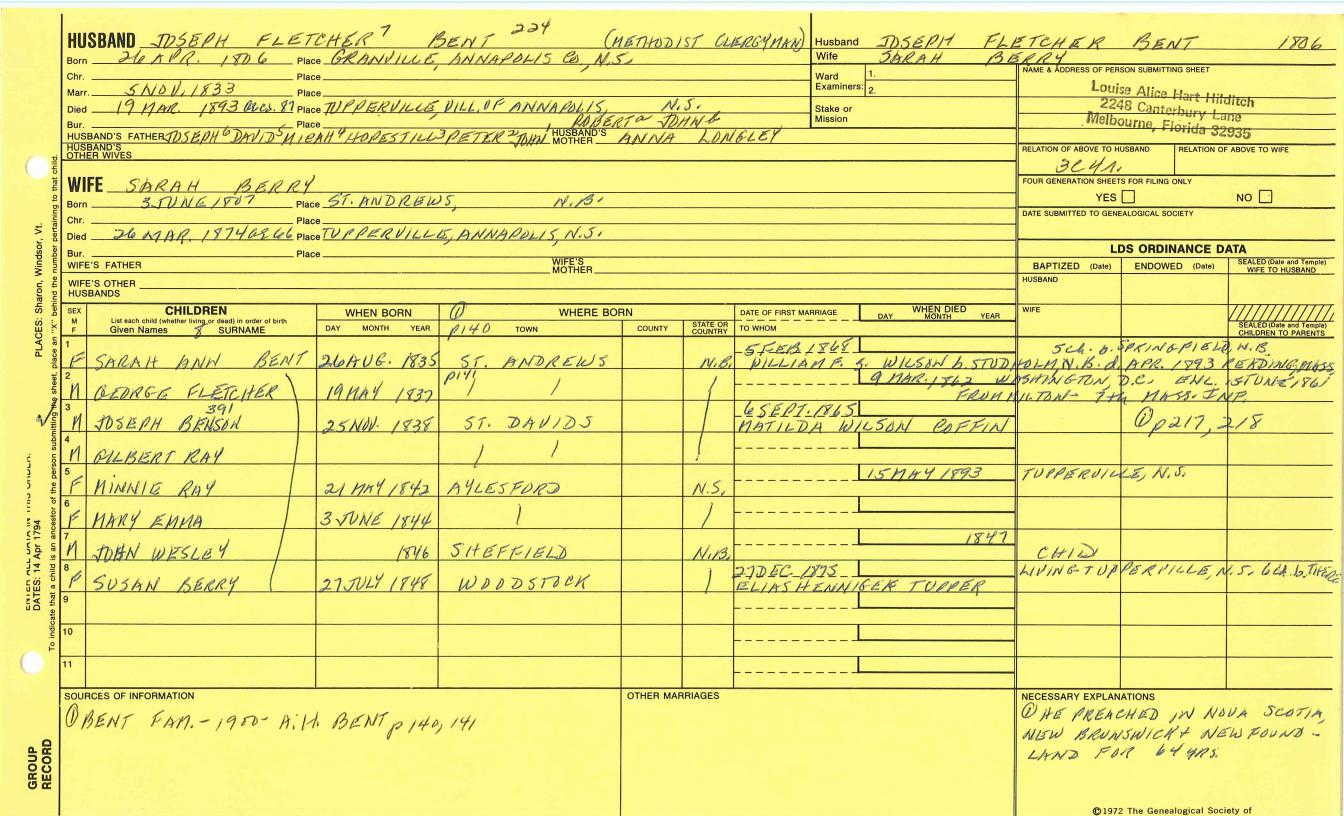 HUSBAND JOSEPH FLETCHER 7 BENT 224 (METHODIST CLERGYMAN)
Born 26 APR. 1806 Place GRANVILLE, ANNAPOLIS CO, N.S.
Chr. Place
Marr. 5 NOV, 1833 Place
Died 19 MAR 1893 87 Place TUPPERVILLE, VILL. OF ANNAPOLIS, N.S.
Bur. Place ROBERT a JOHN b
HUSBAND'S FATHER JOSEPH 6 DAVID 5 MICAH 4 HOPESTILL 3 PETER 2 JOHN 1 HUSBAND'S MOTHER ANNA LONGLEY
HUSBAND'S OTHER WIVES
Husband JOSEPH FLETCHER BENT 1806
Wife SARAH BERRY
Ward Examiners: 1.
2.
Stake or Mission
NAME & ADDRESS OF PERSON SUBMITTING SHEET
Louise Alice Hart Hilditch
2248 Canterbury Lane
Melbourne, Florida 32935
RELATION OF ABOVE TO HUSBAND RELATION OF ABOVE TO WIFE
3C4r.
FOUR GENERATION SHEETS FOR FILING ONLY
YES NO
DATE SUBMITTED TO GENEALOGICAL SOCIETY
WIFE SARAH BERRY
Born 3 JUNE 1807 Place ST. ANDREWS, N.B.
Chr. Place
Died 26 MAR. 1874 66 Place TUPPERVILLE, ANNAPOLIS, N.S.
Bur. Place
WIFE'S FATHER WIFE'S MOTHER
WIFE'S OTHER HUSBANDS
LDS ORDINANCE DATA
BAPTIZED (Date) ENDOWED (Date) SEALED (Date and Temple) WIFE TO HUSBAND
HUSBAND
WIFE
SEALED (Date and Temple) CHILDREN TO PARENTS
SEX M F
CHILDREN
List each child (whether living or dead) in order of birth
Given Names 8 SURNAME
WHEN BORN
DAY MONTH YEAR
① WHERE BORN
p140 TOWN COUNTY STATE OR COUNTRY
DATE OF FIRST MARRIAGE
TO WHOM
WHEN DIED
DAY MONTH YEAR
5 FEB 1868 5ch. b. SPRINGFIELD, N.B.
1 F SARAH ANN BENT 26 AUG. 1835 ST. ANDREWS N.B. WILLIAM F. S. WILSON b. STUDHOLM, N.B. d. APR. 1893 READING, MASS
p141 9 MAR. 1862 WASHINGTON, D.C. ENL. 15 JUNE 1861
2 M GEORGE FLETCHER 19 MAY 1837 / / / FROM MILTON - 7th MASS. INF.
391 6 SEPT. 1865
3 M JOSEPH BENSON 25 NOV. 1838 ST. DAVIDS MATILDA WILSON COFFIN ① p217, 218
4 M GILBERT RAY / /
15 MAY 1893 TUPPERVILLE, N.S.
5 F MINNIE RAY 21 MAY 1842 AYLESFORD N.S.
6 F MARY EMMA 3 JUNE 1844 / /
1847
7 M JOHN WESLEY 1846 SHEFFIELD N.B. CHILD
27 DEC. 1875 LIVING TUPPERVILLE, N.S. 6ch. b. THERE
8 F SUSAN BERRY 27 JULY 1848 WOODSTOCK / ELIAS HENNIGER TUPPER
9
10
11
SOURCES OF INFORMATION
① BENT FAM. - 1900 - A.H. BENT p 140, 141
OTHER MARRIAGES
NECESSARY EXPLANATIONS
① HE PREACHED IN NOVA SCOTIA,
NEW BRUNSWICK & NEWFOUND-
LAND FOR 64 YRS.
©1972 The Genealogical Society of
PLACES: Sharon, Windsor, Vt.
To indicate that a child is an ancestor of the person submitting the sheet, place an "X" behind the number pertaining to that child.
DATES: 14 Apr 1794
GROUP
RECORD